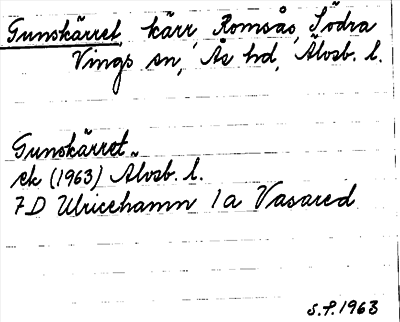 Gunskärret, kärr, Romsås, Södra
Vings sn, Ås hd, Älvsb. l.
Gunskärret
ek (1963) Älvsb. l.
7D Ulricehamn 1a Vasared
S.F. 1963